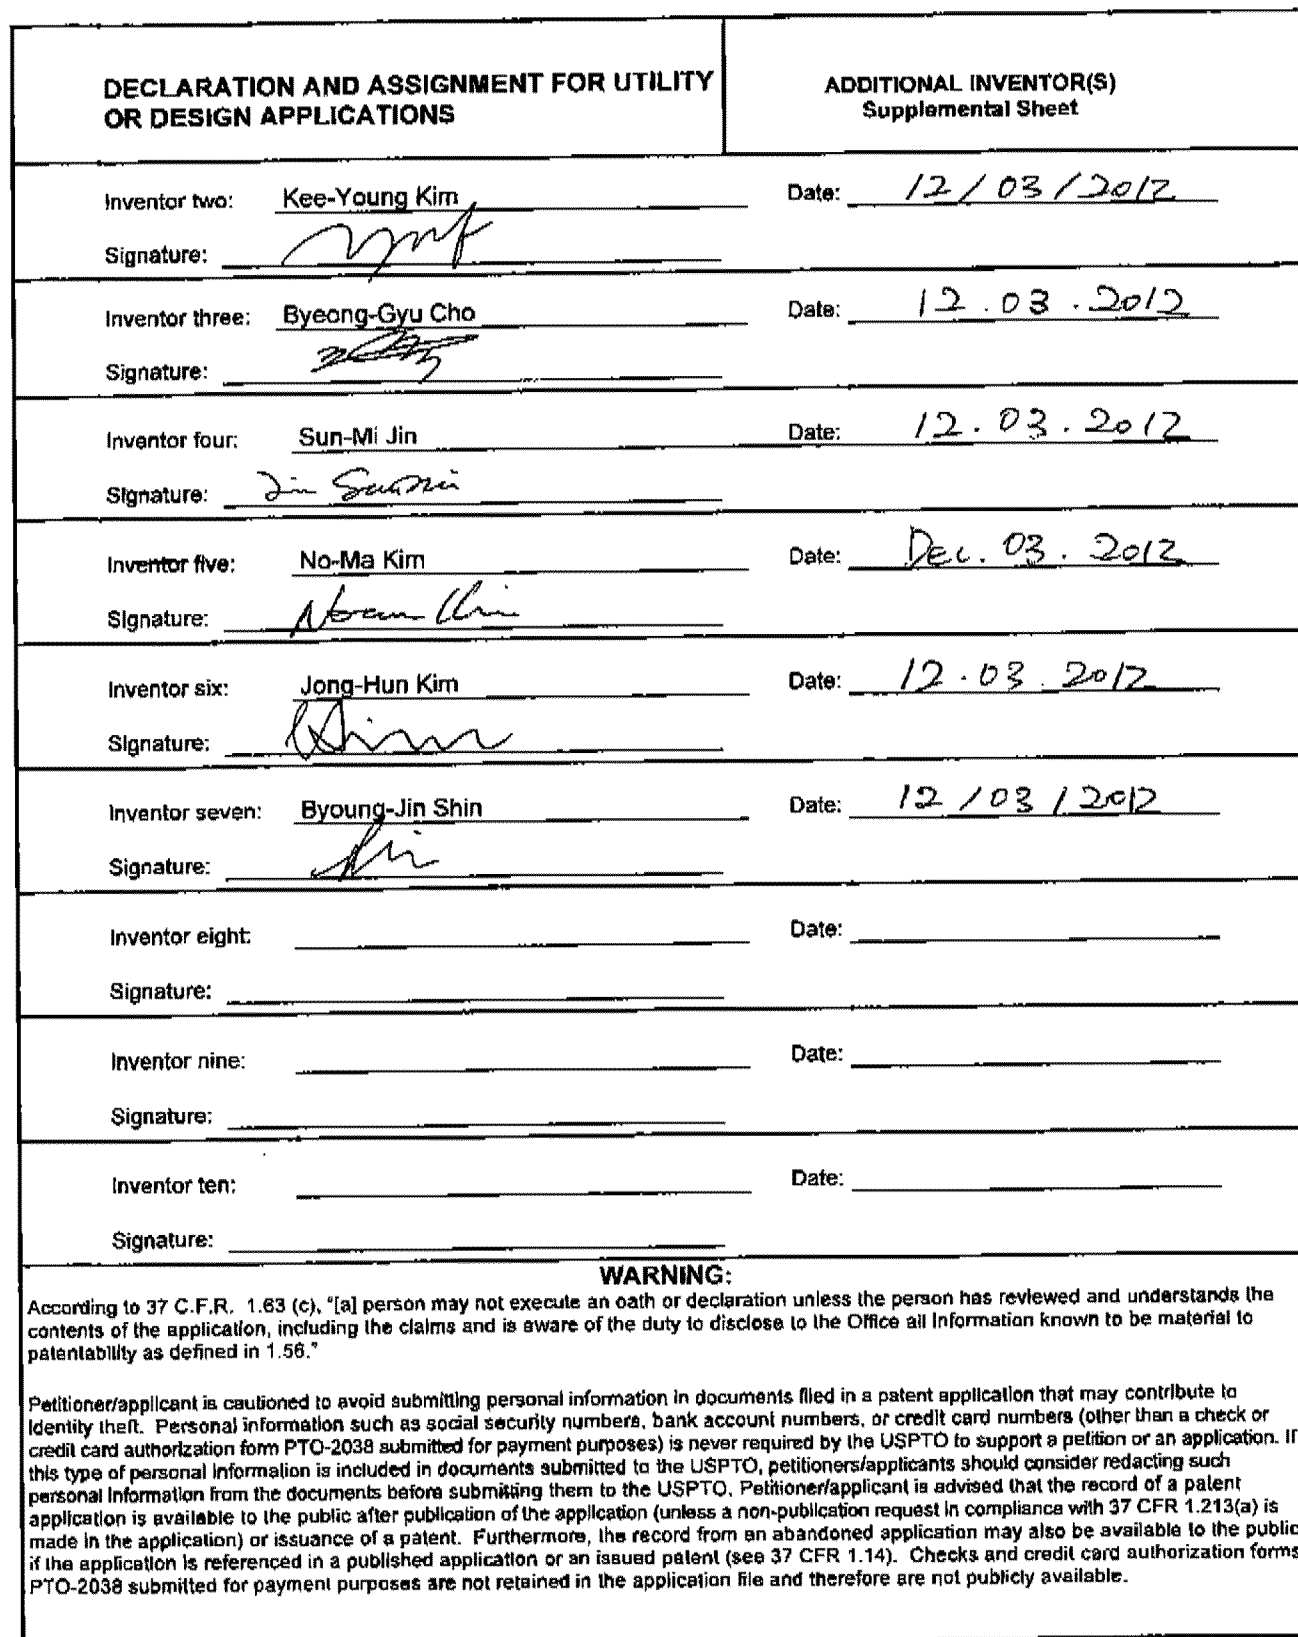 DECLARATION AND ASSIGNMENT FOR UTILITY
OR DESIGN APPLICATIONS
ADDITIONAL INVENTOR(S)
Supplemental Sheet
Inventor two: Kee-Young Kim Date: 12/03/2012
Signature:
Inventor three: Byeong-Gyu Cho Date: 12.03.2012
Signature:
Inventor four: Sun-Mi Jin Date: 12.03.2012
Signature: Jin SunMi
Inventor five: No-Ma Kim Date: Dec. 03. 2012
Signature:
Inventor six: Jong-Hun Kim Date: 12.03.2012
Signature:
Inventor seven: Byoung-Jin Shin Date: 12/03/2012
Signature:
Inventor eight: Date:
Signature:
Inventor nine: Date:
Signature:
Inventor ten: Date:
Signature:
WARNING:
According to 37 C.F.R. 1.63 (c), "[a] person may not execute an oath or declaration unless the person has reviewed and understands the
contents of the application, including the claims and is aware of the duty to disclose to the Office all information known to be material to
patentability as defined in 1.56."
Petitioner/applicant is cautioned to avoid submitting personal information in documents filed in a patent application that may contribute to
identity theft. Personal information such as social security numbers, bank account numbers, or credit card numbers (other than a check or
credit card authorization form PTO-2038 submitted for payment purposes) is never required by the USPTO to support a petition or an application. If
this type of personal information is included in documents submitted to the USPTO, petitioners/applicants should consider redacting such
personal information from the documents before submitting them to the USPTO. Petitioner/applicant is advised that the record of a patent
application is available to the public after publication of the application (unless a non-publication request in compliance with 37 CFR 1.213(a) is
made in the application) or issuance of a patent. Furthermore, the record from an abandoned application may also be available to the public
if the application is referenced in a published application or an issued patent (see 37 CFR 1.14). Checks and credit card authorization forms
PTO-2038 submitted for payment purposes are not retained in the application file and therefore are not publicly available.